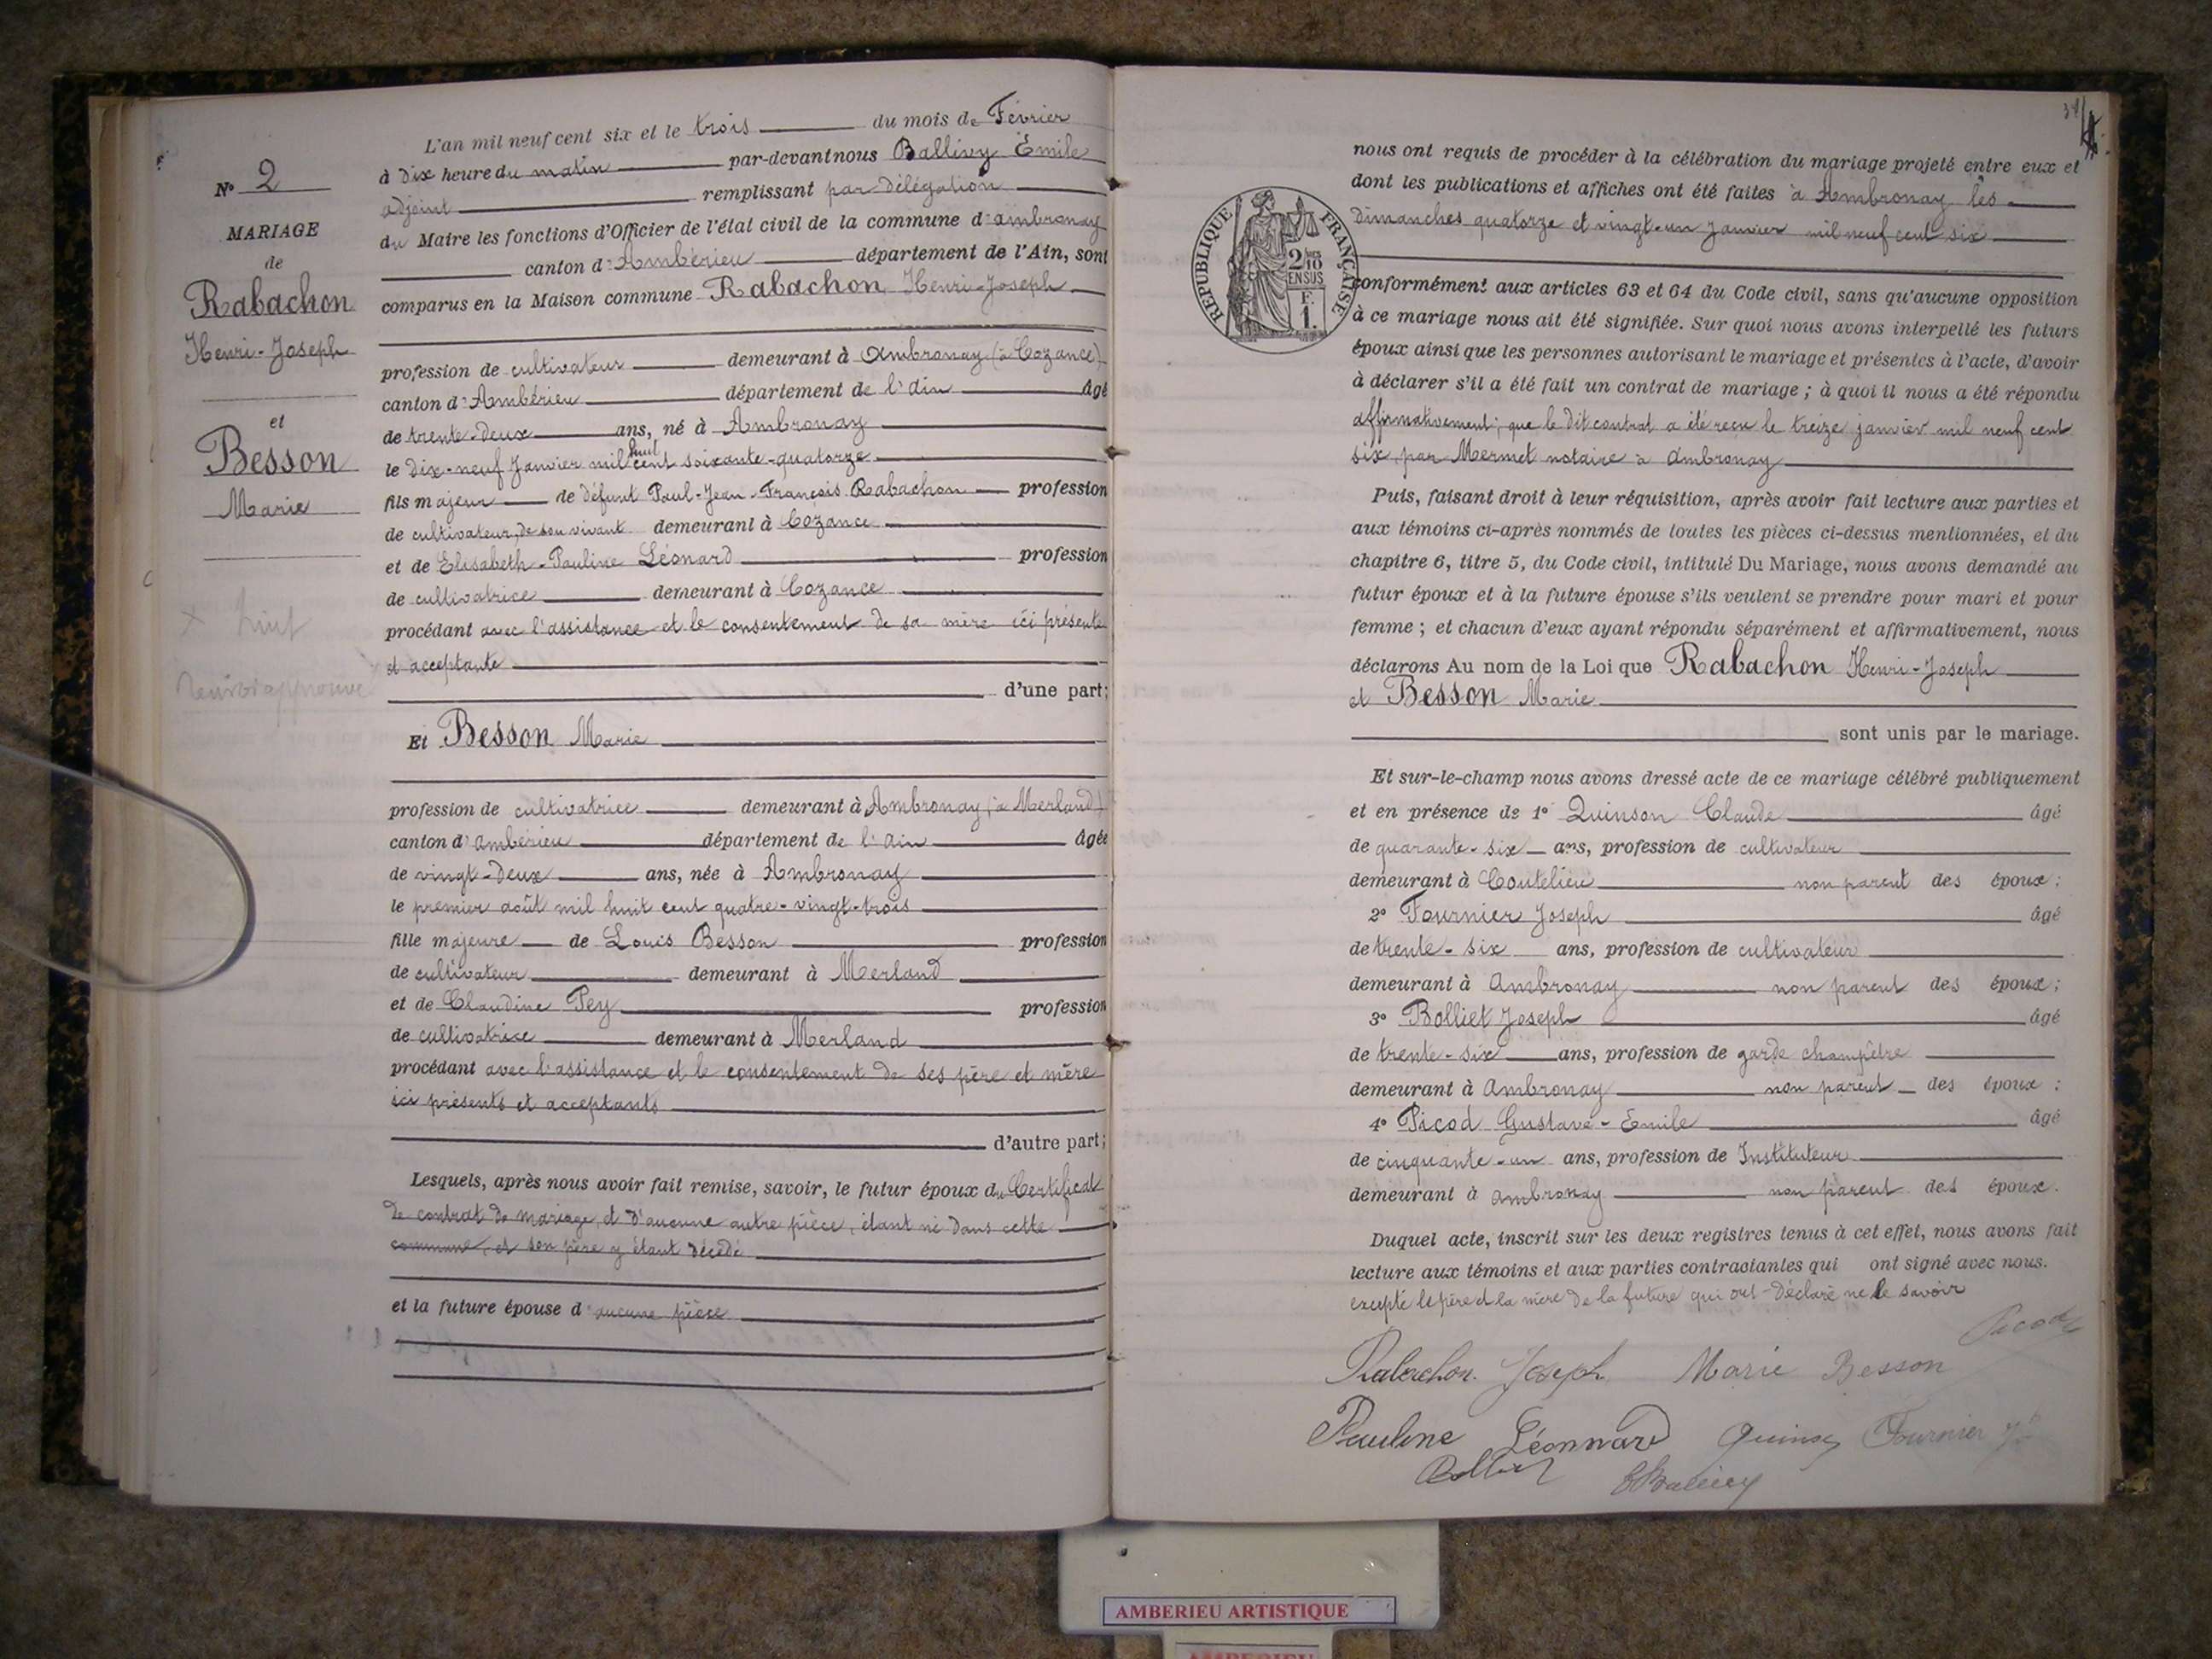 N° 2
MARIAGE
de
Rabachon
Henri-Joseph
et
Besson
Marie
huit
L'an mil neuf cent six et le trois du mois de Février
à dix heure du matin par-devant nous Ballivy Émile
adjoint remplissant par délégation
du Maire les fonctions d'Officier de l'état civil de la commune d'ambronay
canton d'Ambérieu département de l'Ain, sont
comparus en la Maison commune Rabachon Henri-Joseph
profession de cultivateur demeurant à Ambronay (à Cozance)
canton d'Ambérieu département de l'ain âgé
de trente-deux ans, né à Ambronay
le dix-neuf Janvier mil huit cent soixante-quatorze
fils majeur de défunt Paul-Jean-François Rabachon profession
de cultivateur, de son vivant demeurant à Cozance
et de Elisabeth-Pauline Léonard profession
de cultivatrice demeurant à Cozance
procédant avec l'assistance et le consentement de sa mère ici présente
et acceptante
d'une part;
Et Besson Marie
profession de cultivatrice demeurant à Ambronay (à Merland)
canton d'ambérieu département de l'Ain âgée
de vingt-deux ans, née à Ambronay
le premier août mil huit cent quatre-vingt-trois
fille majeure de Louis Besson profession
de cultivateur demeurant à Merland
et de Claudine Pey profession
de cultivatrice demeurant à Merland
procédant avec l'assistance et le consentement de ses père et mère
ici présents et acceptants
d'autre part;
Lesquels, après nous avoir fait remise, savoir, le futur époux du Certificat
de contrat de mariage, et d'aucune autre pièce, étant né dans cette
commune, et son père y étant décédé
et la future épouse d'aucune pièce
nous ont requis de procéder à la célébration du mariage projeté entre eux et
dont les publications et affiches ont été faites à Ambronay les
dimanches quatorze et vingt-un Janvier mil neuf cent six
RÉPUBLIQUE FRANÇAISE
2/10
EN SUS
F.
1.
conformément aux articles 63 et 64 du Code civil, sans qu'aucune opposition
à ce mariage nous ait été signifiée. Sur quoi nous avons interpellé les futurs
époux ainsi que les personnes autorisant le mariage et présentes à l'acte, d'avoir
à déclarer s'il a été fait un contrat de mariage ; à quoi il nous a été répondu
affirmativement; que le dit contrat a été recu le treize janvier mil neuf cent
six, par Mermet notaire à Ambronay
Puis, faisant droit à leur réquisition, après avoir fait lecture aux parties et
aux témoins ci-après nommés de toutes les pièces ci-dessus mentionnées, et du
chapitre 6, titre 5, du Code civil, intitulé Du Mariage, nous avons demandé au
futur époux et à la future épouse s'ils veulent se prendre pour mari et pour
femme ; et chacun d'eux ayant répondu séparément et affirmativement, nous
déclarons Au nom de la Loi que Rabachon Henri-Joseph
et Besson Marie
sont unis par le mariage.
Et sur-le-champ nous avons dressé acte de ce mariage célébré publiquement
et en présence de 1° Quinson Claude âgé
de quarante-six ans, profession de cultivateur
demeurant à Coutelieu non parent des époux ;
2° Fournier Joseph âgé
de trente-six ans, profession de cultivateur
demeurant à Ambronay non parent des époux ;
3° Bolliet Joseph âgé
de trente-six ans, profession de garde champêtre
demeurant à Ambronay non parent des époux ;
4° Picod Gustave-Emile âgé
de cinquante-un ans, profession de Instituteur
demeurant à Ambronay non parent des époux.
Duquel acte, inscrit sur les deux registres tenus à cet effet, nous avons fait
lecture aux témoins et aux parties contractantes qui ont signé avec nous.
excepté le père et la mère de la future qui ont déclaré ne le savoir
Picod
Rabachon Joseph Marie Besson
Pauline Léonnard Quinson Fournier Jh
Bolliet EBallivy
AMBERIEU ARTISTIQUE
AMBERIEU